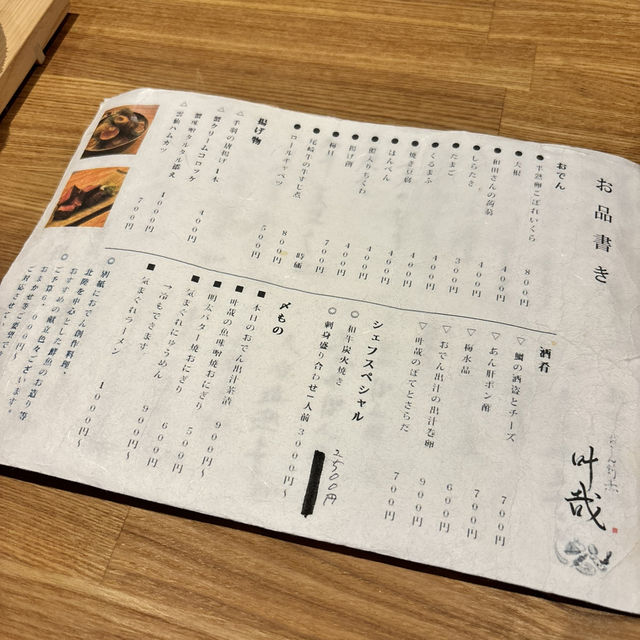 お品書き
叶哉
おでん
● 半熟卵こぼれいくら 800円
● 大根 400円
● 和田さんの蒟蒻 400円
● しらたき 400円
● たまご 300円
● くるまふ 400円
● 焼き豆腐 400円
● はんぺん 400円
● 400円
● 揚げ湯 400円
● 梅貝 700円
● 尾崎牛の牛すじ煮 時価
● ロールキャベツ 800円
揚げ物
△ 手羽の唐揚げ 1本 500円
△ 蟹クリームコロッケ 400円
△ 蟹味噌タルタル添え
△ 雲仙ハムカツ 700円
酒肴
▽ 鯛の酒盗とチーズ 700円
▽ あん肝ポン酢 700円
▽ 梅水晶 600円
▽ おでん出汁の出汁巻卵 700円
▽ 叶哉のぽてとさらだ 700円
シェフスペシャル
◎ 和牛炭火焼き 2500円
◎ 刺身盛り合わせ1人前 3000円〜
〆もの
■ 本日のおでん出汁茶漬 900円〜
■ 叶哉の魚味噌焼おにぎり 500円
■ 明太バター焼おにぎり 500円
■ 気まぐれにゅうめん 600円
→冷もできます。 900円
■ 気まぐれラーメン 1000円〜
◎ 別紙におでん創作料理、
北陸を中心とした鮮魚のお造り等
おすすめの献立色々ございます。